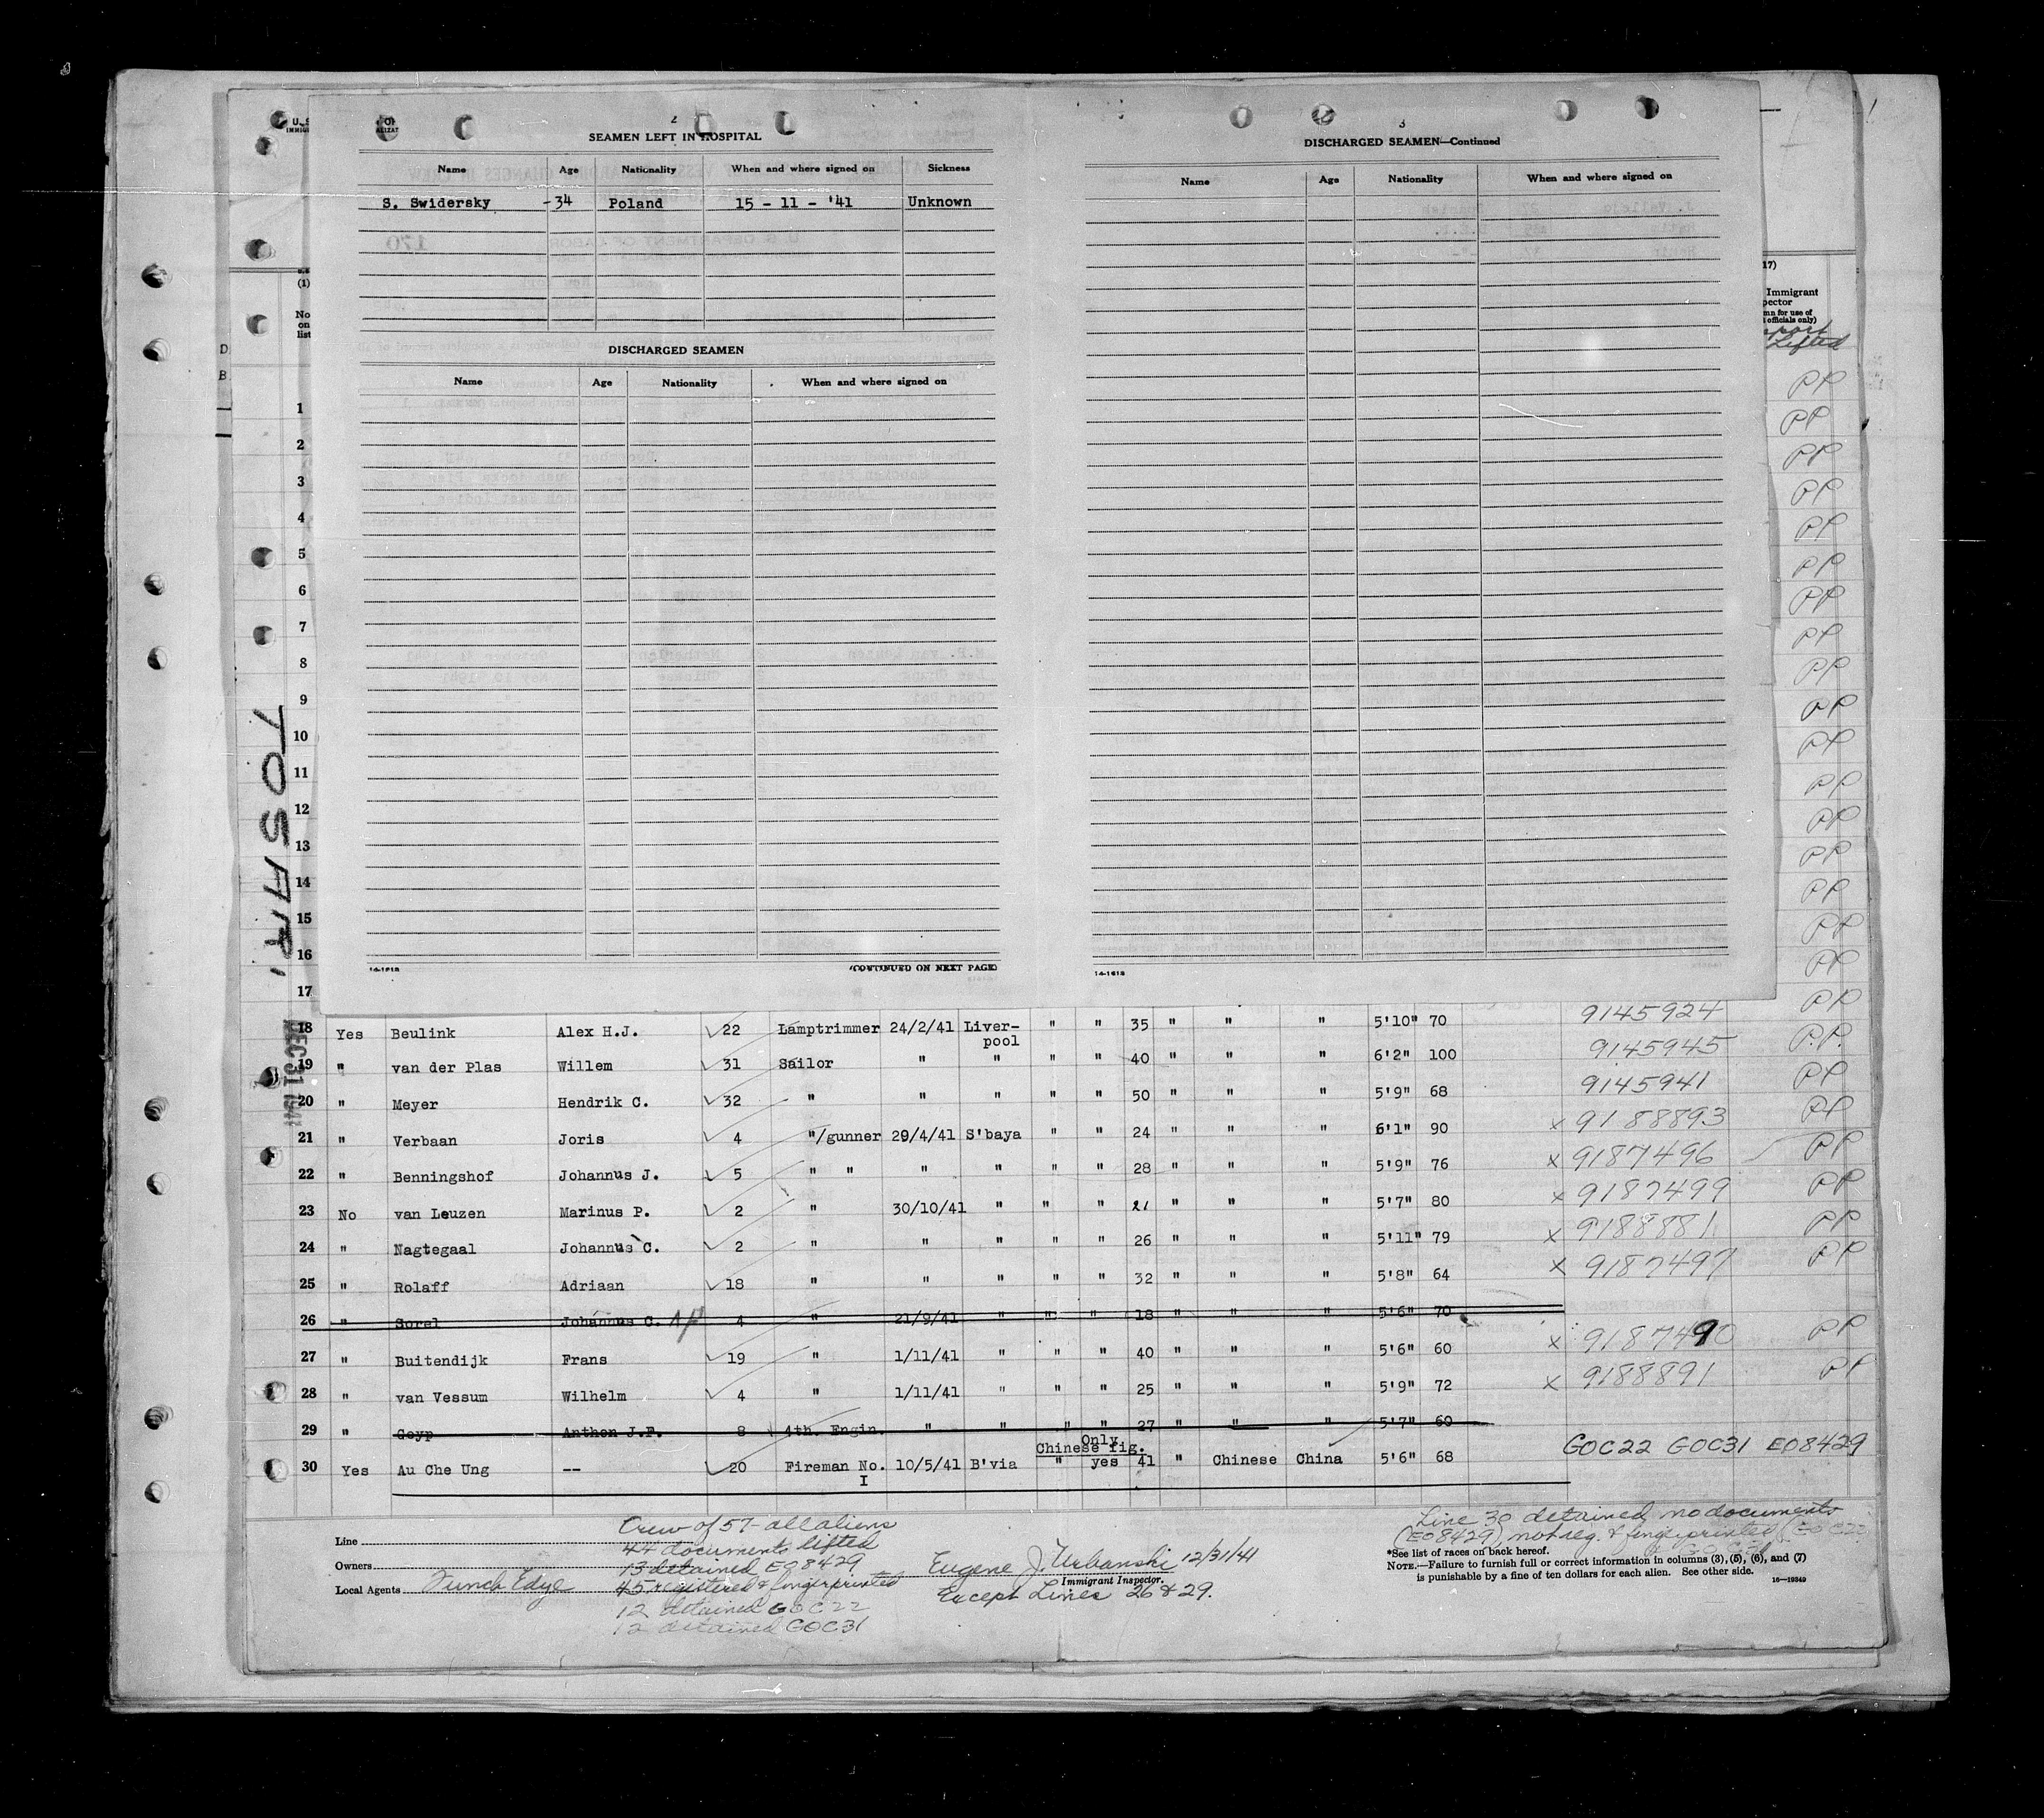 2
SEAMEN LEFT IN HOSPITAL
Name Age Nationality When and where signed on Sickness
S. Swidersky -34 Poland 15 - 11 - '41 Unknown
DISCHARGED SEAMEN
Name Age Nationality When and where signed on
(CONTINUED ON NEXT PAGE)
3
DISCHARGED SEAMEN—Continued
Name Age Nationality When and where signed on
14-1618
(1)
No
on
list
17)
Immigrant
officials only)
Lifted
TOSARI
DEC 31 1941
1 PP
2 PP
3 PP
4 PP
5 PP
6 PP
7 PP
8 PP
9 PP
10 PP
11 PP
12 PP
13 PP
14 PP
15 PP
16 PP
17 PP
18 Yes Beulink Alex H.J. 22 Lamptrimmer 24/2/41 Liver-pool " " 35 " " " 5'10" 70 9145924 PP
19 " van der Plas Willem 31 Sailor " " " " 40 " " " 6'2" 100 9145945 P.P.
20 " Meyer Hendrik C. 32 " " " " " 50 " " " 5'9" 68 9145941 PP
21 " Verbaan Joris 4 "/gunner 29/4/41 S'baya " " 24 " " " 6'1" 90 x 9188893 PP
22 " Benningshof Johannus J. 5 " " " " " " 28 " " " 5'9" 76 x 9187496 PP
23 No van Leuzen Marinus P. 2 " 30/10/41 " " " 21 " " " 5'7" 80 x 9187499 PP
24 " Nagtegaal Johannus C. 2 " " " " " 26 " " " 5'11" 79 x 9188881 PP
25 " Rolaff Adriaan 18 " " " " " 32 " " " 5'8" 64 x 9187497 PP
26 " Sorel Johannus C. 4 " 21/9/41 " " " 18 " " " 5'6" 70
27 " Buitendijk Frans 19 " 1/11/41 " " " 40 " " " 5'6" 60 x 9187490 PP
28 " van Vessum Wilhelm 4 " 1/11/41 " " " 25 " " " 5'9" 72 x 9188891 PP
29 " Goyp Anthon J.P. 8 4th. Engin. " " " " 27 " " " 5'7" 60
Only
Chinese fig.
30 Yes Au Che Ung -- 20 Fireman No. I 10/5/41 B'via " yes 41 " Chinese China 5'6" 68 GOC22 GOC31 E08429
Line
Owners
Local Agents Funch Edye
Crew of 57 - all aliens
44 documents lifted
13 detained E08429
45 registered & fingerprinted
12 detained GOC22
12 detained GOC31
Eugene J. Urbanski 12/31/41
Immigrant Inspector.
Except Lines 26 & 29.
Line 30 detained no documents
(E08429) not reg. & fingerprinted (GOC22
& GOC31)
*See list of races on back hereof.
NOTE.—Failure to furnish full or correct information in columns (3), (5), (6), and (7)
is punishable by a fine of ten dollars for each alien. See other side.
16—19349